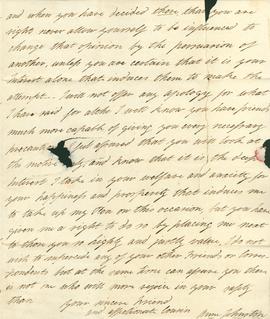 and when you have decided there that you are
right never allow yourself to be influenced to
change that opinion by the persuasion of
another, unless you are certain that it is your
interest alone that induces them to make the
attempt. I will not offer any apology for what
I have said for altho I well know you have friends
much more capable of giving you every necessary
assured that you will look at
the motive and know that it is the deep
Interest I take in your welfare and anxiety for
your happiness and prosperity that induces me
to take up my Pen on this occasion, but you have
given me a right to do so by placing me next
to whom you so highly and justly value, I do not
wish to any of your other Friends or Corres
pondents but at the same time can assure you there
is not one who will more rejoice in your safety
than your sincere Friend
and affectionate Cousin
Johnston